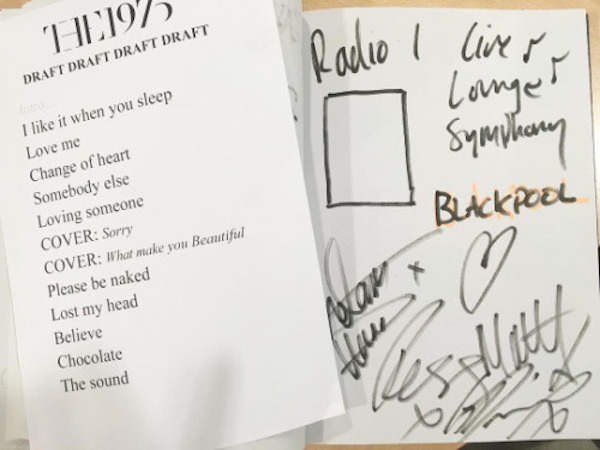 THE1975
DRAFT DRAFT DRAFT DRAFT
Intro
I like it when you sleep
Love me
Change of heart
Somebody else
Loving someone
COVER: Sorry
COVER: What make you Beautiful
Please be naked
Lost my head
Believe
Chocolate
The sound
Radio 1
Live
Lounge
Symphony
BLACKPOOL
Adam
Ross
Matty